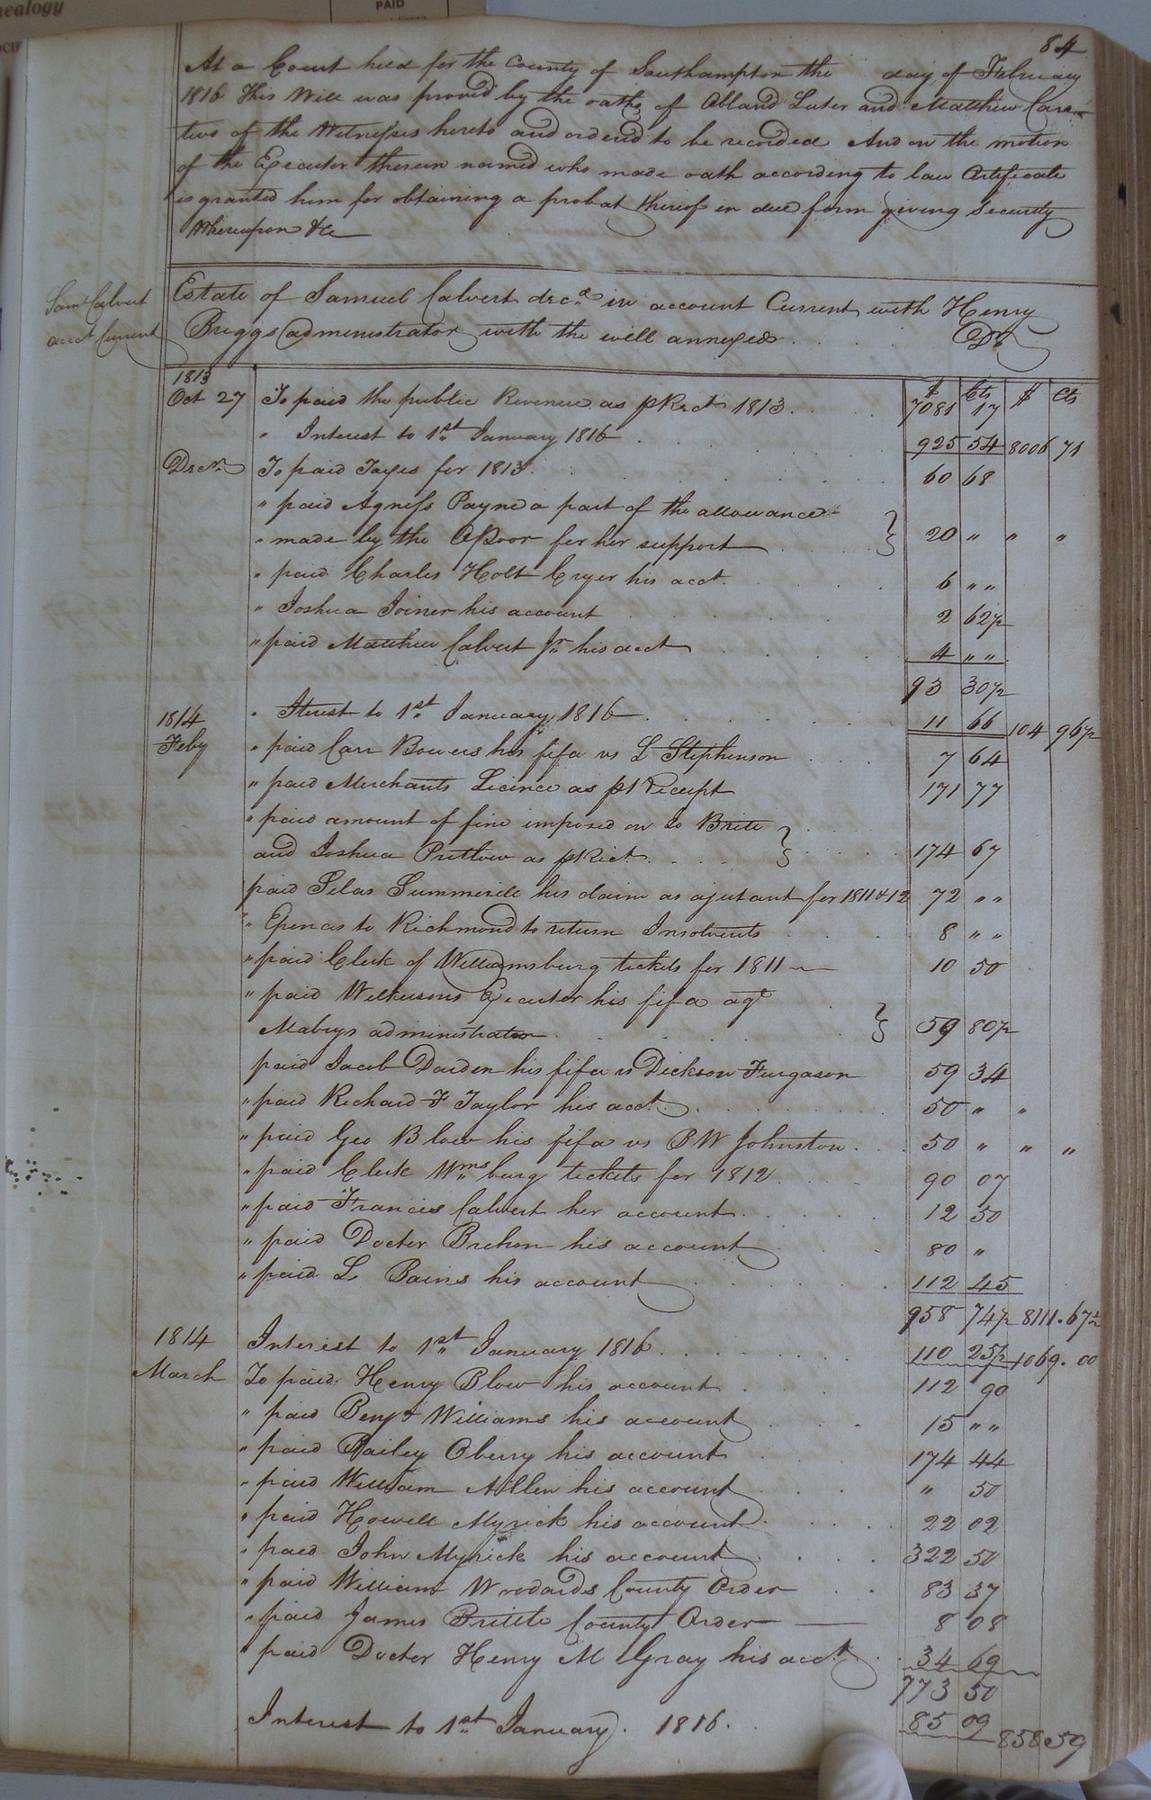 nealogy
PAID
84
At a Court held for the County of Southampton the day of February
1816 This Will was proved by the oaths of Abland Luter and Matthew Carr
two of the Witnesses hereto and ordered to be recorded And on the motion
of the Executor therein named who made oath according to law Certificate
is granted him for obtaining a probat thereof in due form giving Security
Whereupon &c
Saml Calvert
acct Current
Estate of Samuel Calvert decd. in account Current with Henry
Briggs administrator with the will annexed Dr
$ Cts $ Cts
1813
Oct 27 To paid the public Revenue as pRect 1813 7081 17
" Interest to 1st January 1816 925 54 8006 71
Decr To paid Taxes for 1813 60 68
" paid Agness Payne a part of the allowance
" made by the Poor for her support 20 " " "
" paid Charles Holt Cryer his acct. 6 " "
" Joshua Joiner his account 2 62½
" paid Matthew Calvert Jr his acct 4 " "
93 30½
" Iterest to 1st January 1816 11 66 104 96½
1814
Feby " paid Carr Bowers his fifa vs L Stephenson 7 64
" paid Merchants Licence as pr Receipt 171 77
" paid amount of fine imposed on Jo Britt
and Joshua Pretlow as pRect 174 67
paid Silas Summerell his claim as ajutant for 1811 & 12 72 " "
" Epences to Richmond to return Insolvents 8 " "
" paid Clerk of Williamsburg tickets for 1811 10 50
" paid Wilkinsons Executor his fifa agt
Mabrys administrator 59 80½
paid Jacob Darden his fifa vs Dickson Furgason 59 34
" paid Richard F Taylor his acct 50 " "
" paid Geo Blow his fifa vs P W Johnston 50 " " "
" paid Clerk Wmsburg tickets for 1812 90 07
" paid Francies Calvert her account 12 50
" paid Doctor Brehon his account 80 "
" paid L Bains his account 112 45
958 74½ 8111.67½
1814 Interest to 1st January 1816 110 25½ 1069.00
March To paid Henry Blow his account 112 90
" paid Benjn Williams his account 15 " "
" paid Bailey Oberry his account 174 44
" paid William Allen his account " 50
" paid Howell Myrick his account 22 02
" paid John Myrick his account 322 50
" paid William Wrodards County Order 83 37
" paid James Brittle County Order 8 08
" paid Doctor Henry M Gray his acct 34 69
773 50
Interest to 1st January 1816. 85 09 858 59